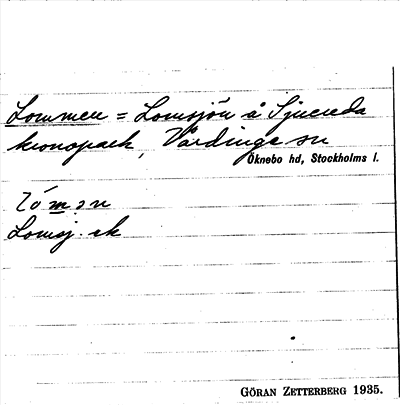 Lommen = Lomsjön å Sjuenda
kronopark, Vårdinge sn
Öknebo hd, Stockholms l.
lómən
Lomsj. ek
GÖRAN ZETTERBERG 1935.